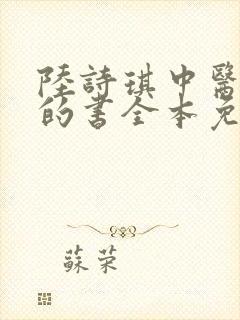 陸詩琪中醫
的書全本免
蘇荣